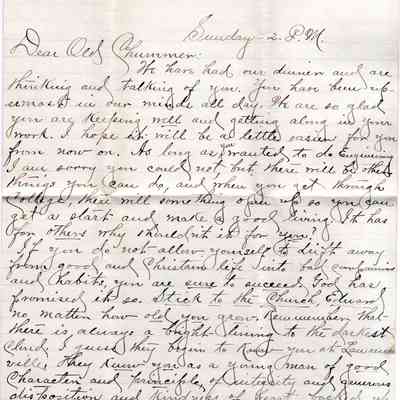 Sunday - 2. P.M.
Dear Old Chummer:
We have had our dinner and are
thinking and talking of you. You have been up-
ermost in our minds all day. We are so glad
you are keeping well and getting along in your
work. I hope it will be a little easier for you
from now on. As long as you wanted to do Engineering
I am sorry you could not, but there will be other
things you can do, and when you get through
College, there will something open up so you can
get a start and make a good living. It has
for others why shouldn't it for you?
If you do not allow yourself to drift away
from good and Christian life into bad companions
and habits, you are sure to succeed. God has
promised it so. Stick to the Church, Edward
no matter how old you grow. Remember that
there is always a bright lining to the darkest
Cloud. I guess they begin to know you at Lawrence
ville. They know you as a young man of good
Character and principle, of integrity and generous
disposition and kindness of heart backed up